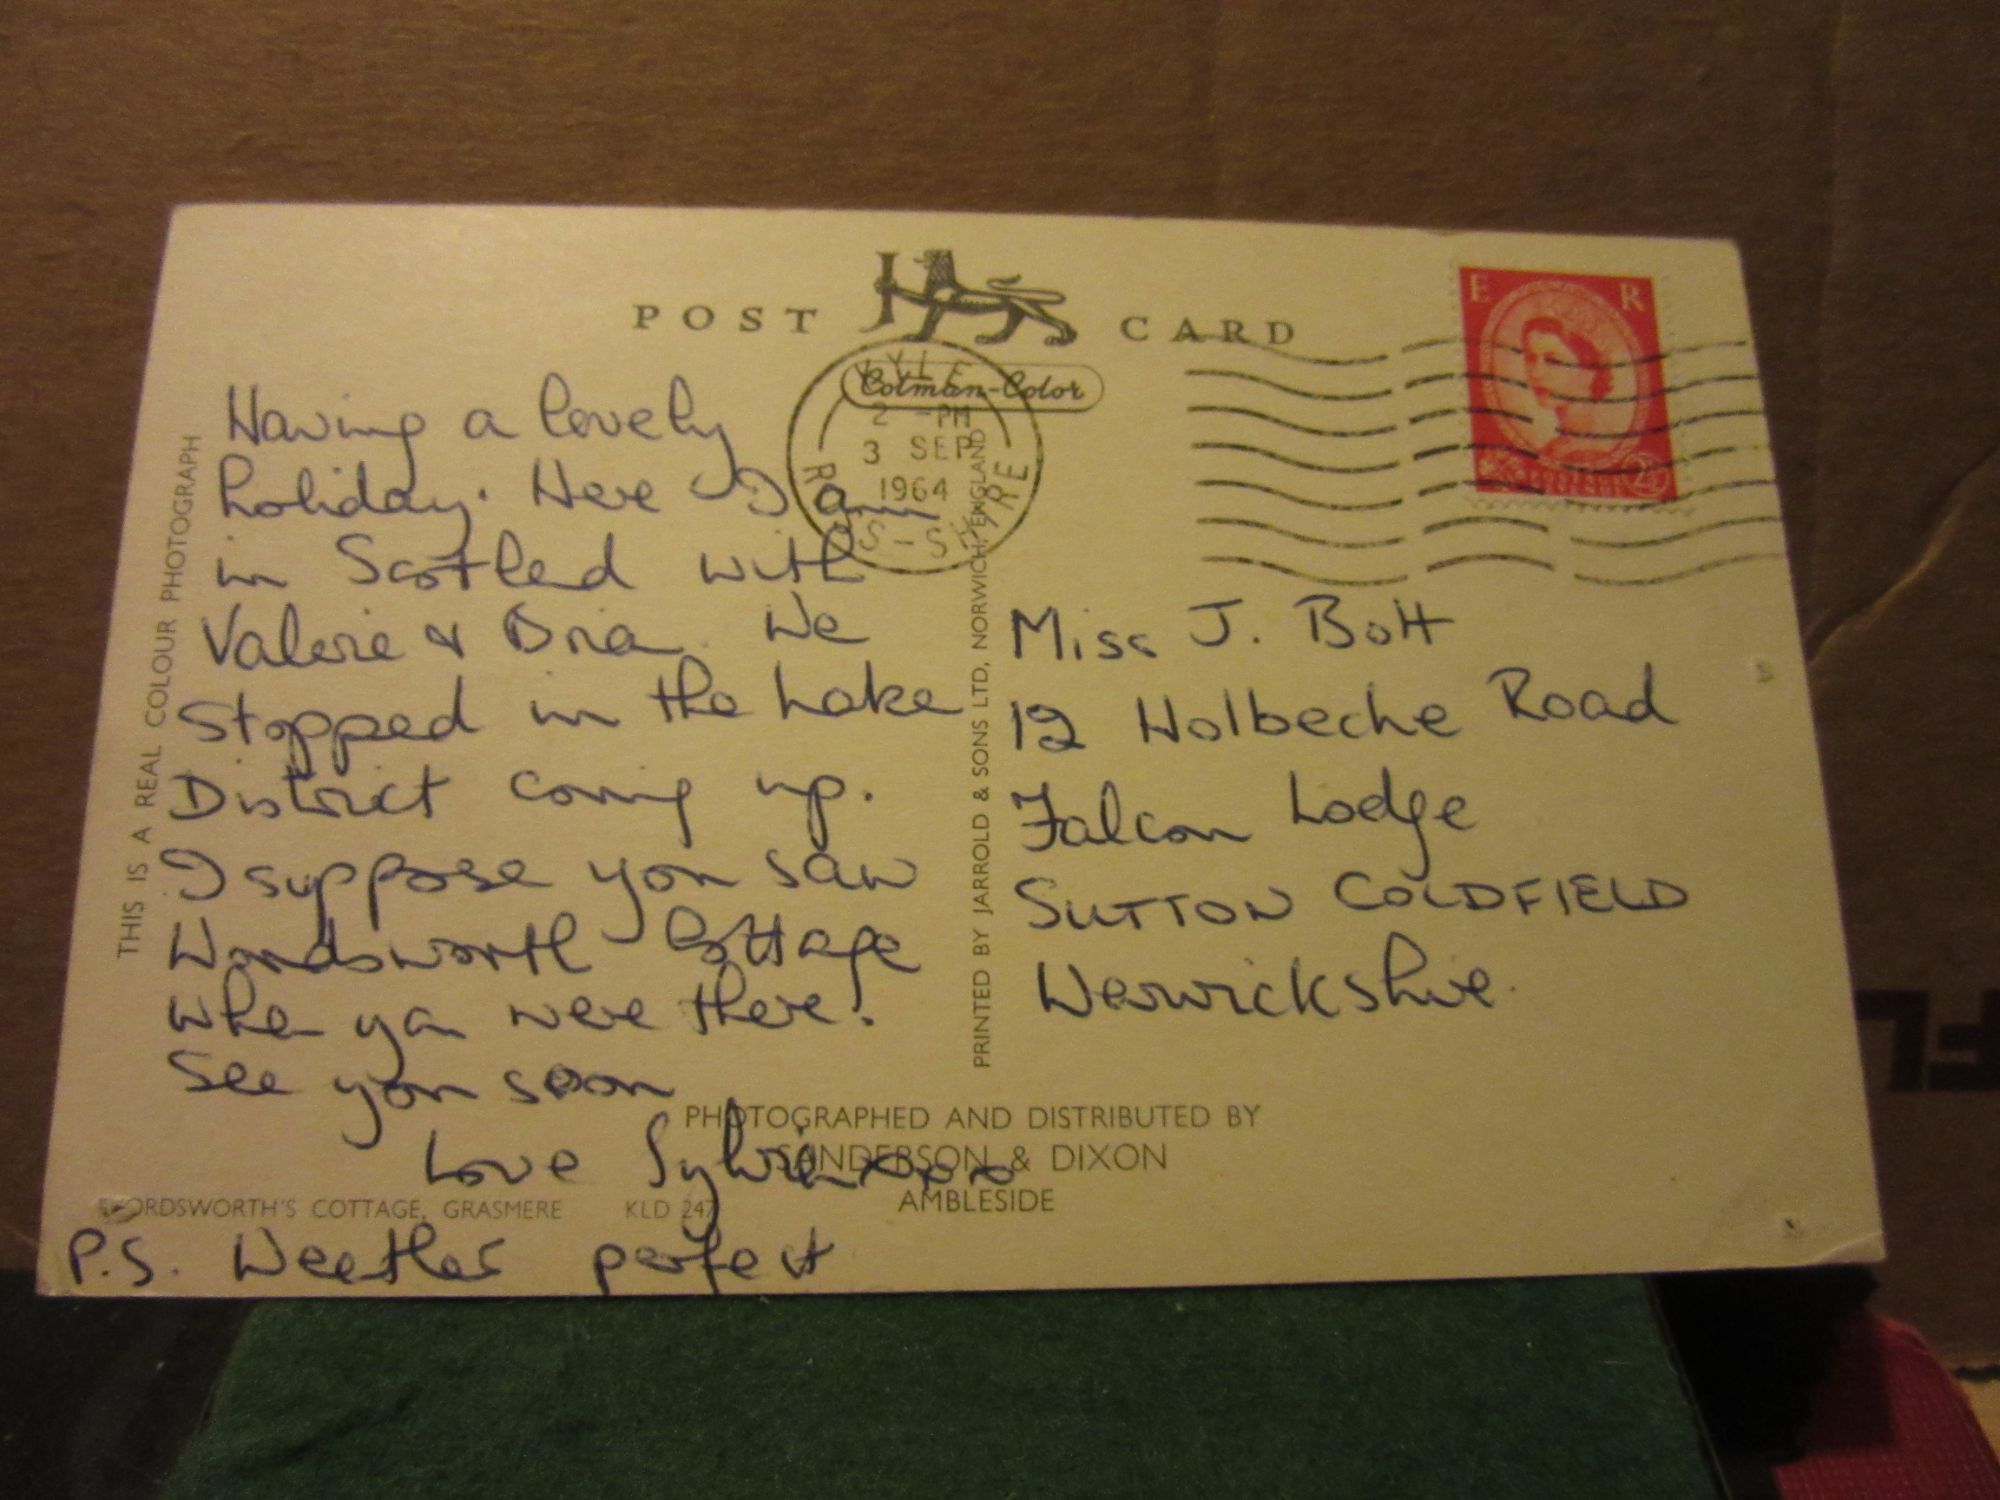 POST CARD
Colman-Color
KYLE
2 - PM
3 SEP
1964
ROSS-SHIRE
E R
2½
Having a lovely
holiday. Here I am
in Scotland with
Valerie & Bria. We
Stopped in the Lake
District coming up.
I suppose you saw
Wordsworth Cottage
when you were there!
See you soon
Love Sylvia xxx
P.S. Weather perfect
Miss J. Bott
12 Holbeche Road
Falcon Lodge
SUTTON COLDFIELD
Warwickshire.
THIS IS A REAL COLOUR PHOTOGRAPH
PRINTED BY JARROLD & SONS LTD, NORWICH, ENGLAND
PHOTOGRAPHED AND DISTRIBUTED BY
SANDERSON & DIXON
AMBLESIDE
WORDSWORTH'S COTTAGE, GRASMERE KLD 247